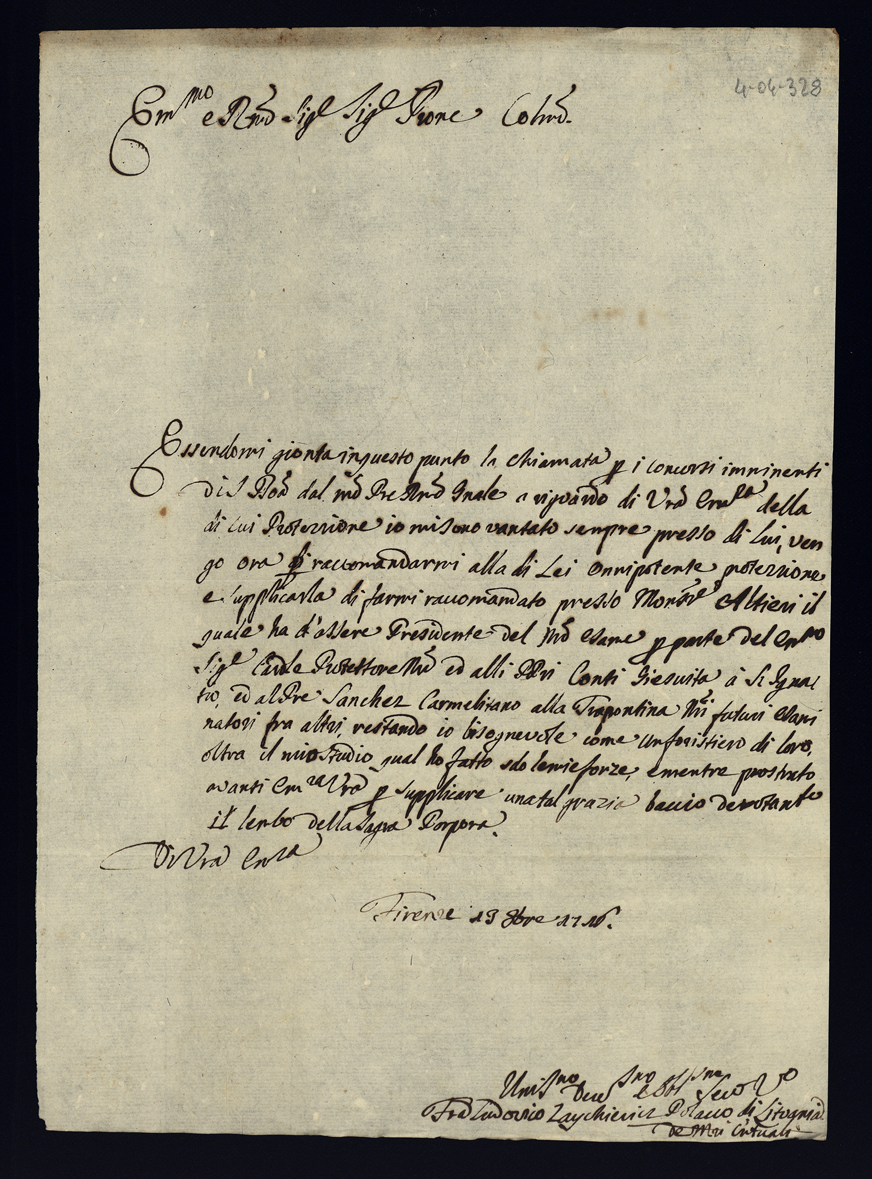 4-04-328
Em.mo e Rmo Sigr Sigr Prone Colmo.
Essendomi gionta in questo punto la chiamata p i concorsi imminenti
di S Bona dal mo Pre Rmo Gnale a riguardo di Vra Emza della
di cui Protezzione io mi sono vantato sempre presso di lui, ven
go ora à raccomandarmi alla di Lei onnipotente protezzione
e supplicarla di farmi raccomandato presso Monsre Altieri il
quale ha d'essere Presidente del Mo esame p parte del Emmo
Sigr Cardle Protettore Mro ed alli PPri Conti Giesuita à St Igna
tio, ed al Pre Sanchez Carmelitano alla Traspontina Mri futuri esami
natori fra altri, restando io bisognevole come un foristiero di loro,
oltra il mio studio qual ho fatto sdo le mie forze, e mentre prostrato
avanti Emza Vra p supplicare una tal grazia baccio devotamte
il lembo della Sagra Porpora.
Di Vra Emza
Firenze 13 8bre 1716.
Umilmo Devmo e Obblmo Servo Vo
Fra Ludovico Zaychievicz Polacco di Lituania
de Mri Cntuali